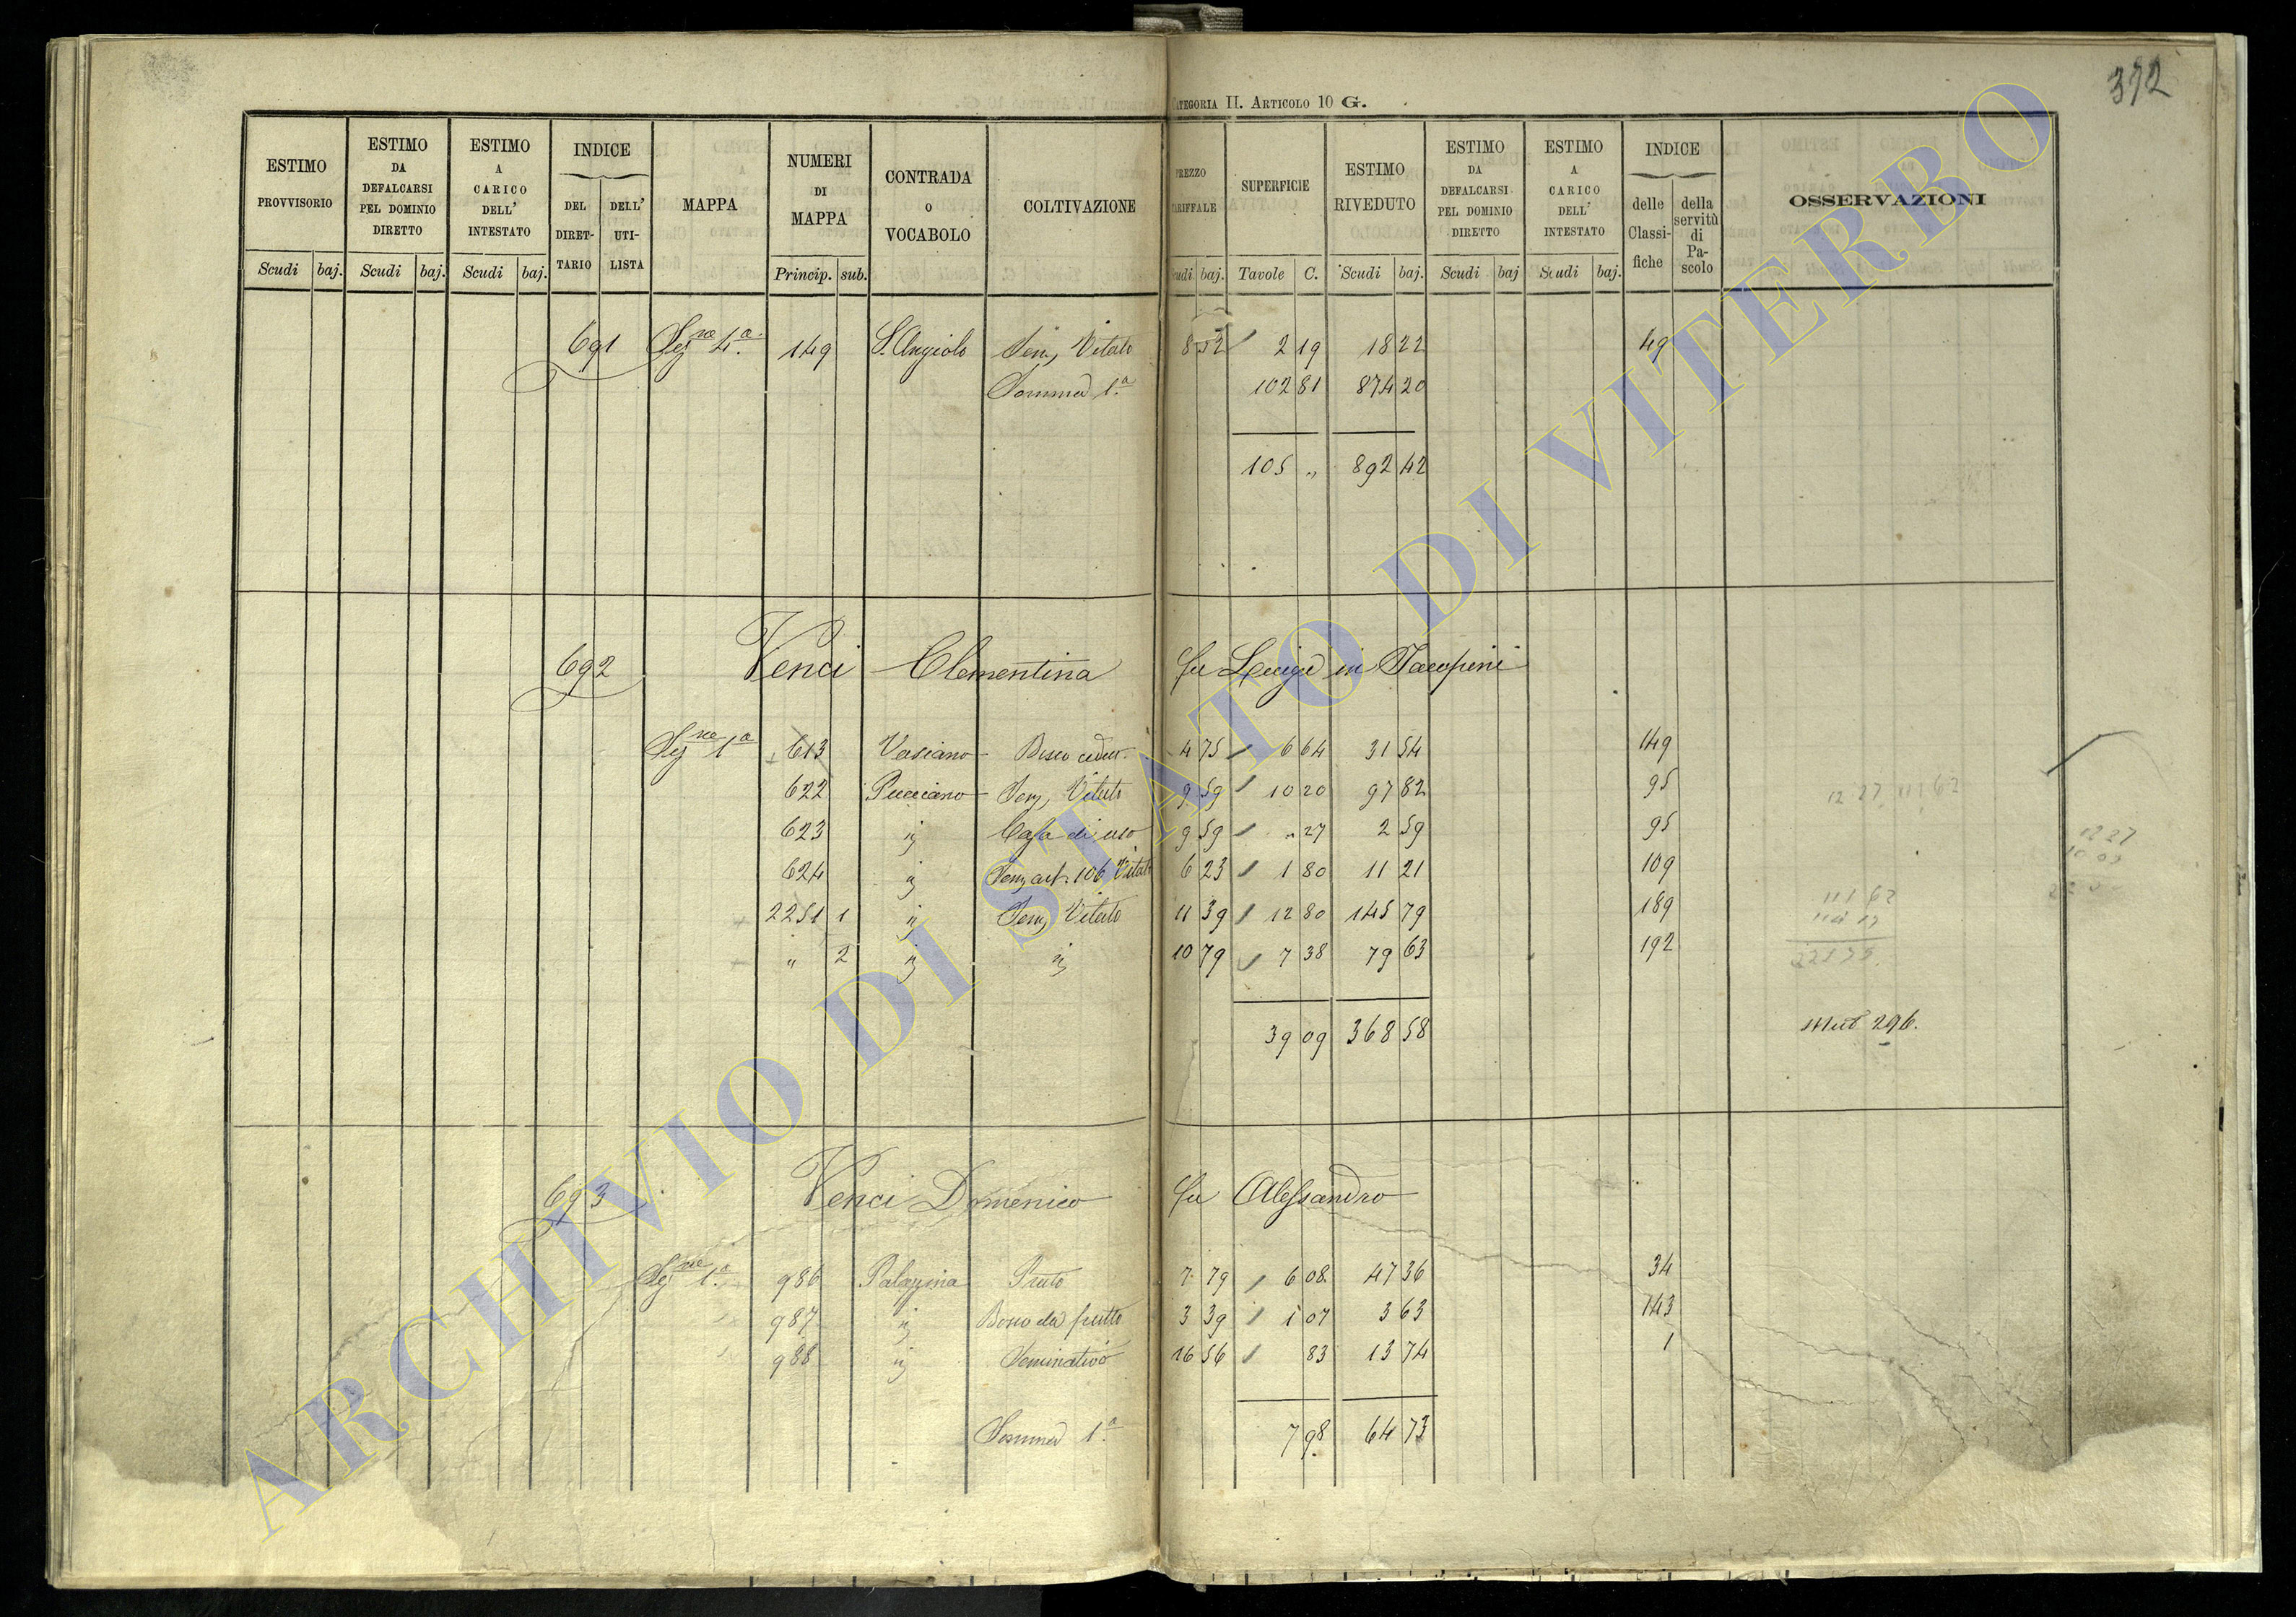 372
CATEGORIA II. ARTICOLO 10 G.
ESTIMO PROVVISORIO
ESTIMO DA DEFALCARSI PEL DOMINIO DIRETTO
ESTIMO A CARICO DELL' INTESTATO
INDICE
DEL DIRET-TARIO
DELL' UTI-LISTA
MAPPA
NUMERI DI MAPPA
CONTRADA o VOCABOLO
COLTIVAZIONE
PREZZO TARIFFALE
SUPERFICIE
ESTIMO RIVEDUTO
ESTIMO DA DEFALCARSI PEL DOMINIO DIRETTO
ESTIMO A CARICO DELL' INTESTATO
INDICE
delle Classi-fiche
della servitù di Pa-scolo
OSSERVAZIONI
Scudi baj. Scudi baj. Scudi baj. Princip. sub. Scudi baj. Tavole C. Scudi baj. Scudi baj Scudi baj.
691 Sez ne 4.a 149 S. Angiolo Sem, Vitato 8 52 2 19 18 22 49
Somma 1.a 102 81 874 20
105 " 892 42
692 Venci Clementina fu Luigi in Jacopini
Sez ne 1a 613 Vasiano Bosco ceduo 4 75 6 64 31 54 149
622 Pucciano Sem, Vitato 9 59 10 20 97 82 95
623 " Casa di uso 9 59 " 27 2 59 95
624 " Sem, art. 106 Vitato 6 23 1 80 11 21 109
2251 1 " Sem, Vitato 11 39 12 80 145 79 189
" 2 " " 10 79 7 38 79 63 192
39 09 368 58
12 27 111 62
12 27
111 62
Mut 296.
693 Venci Domenico fu Alessandro
Sez ne 1.a 986 Palazzina Prato 7 79 6 08 47 36 34
987 " Bosco da frutto 3 39 1 07 3 63 143
988 " Seminativo 16 56 83 13 74 1
Somma 1.a 7 98 64 73
ARCHIVIO DI STATO DI VITERBO